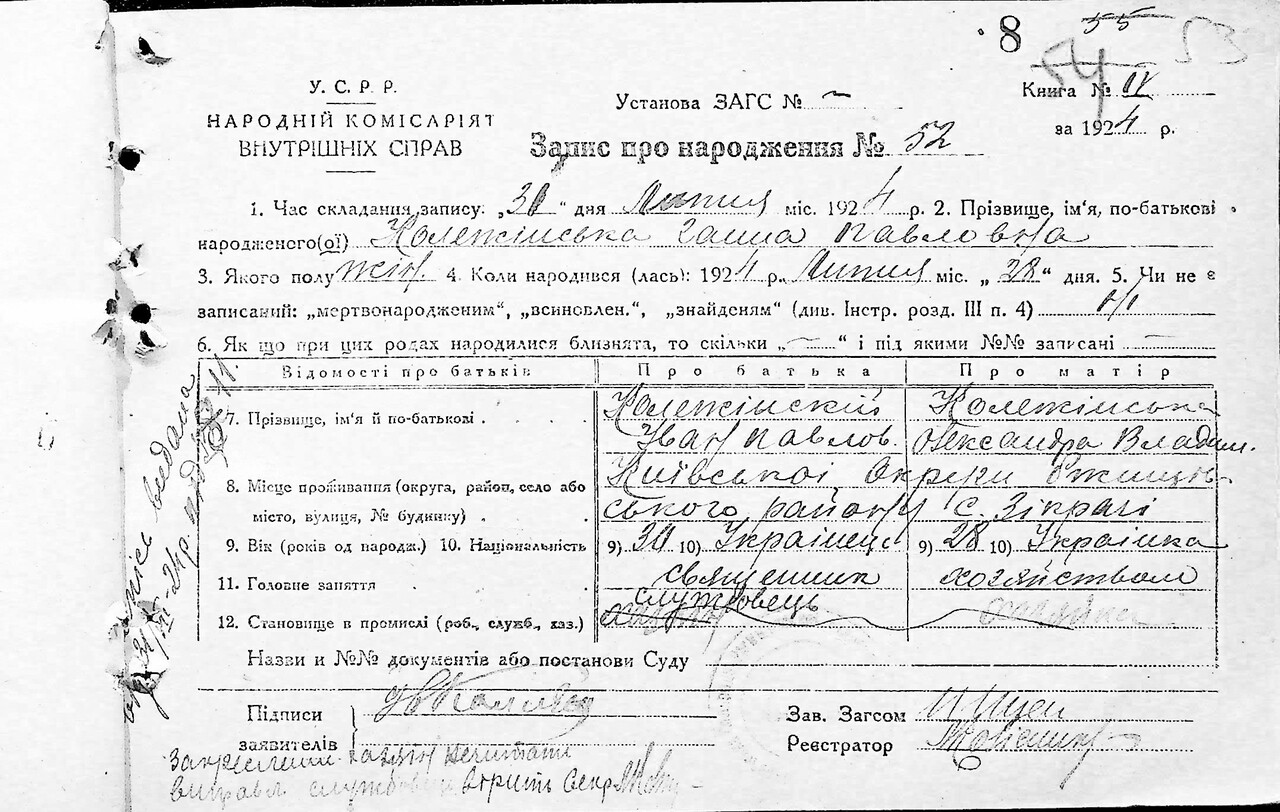 8 55 54 53
У. С. Р. Р.
НАРОДНІЙ КОМІСАРІЯТ
ВНУТРІШНІХ СПРАВ
Установа ЗАГС № —
Запис про народження № 52
Книга №
за 1924 р.
1. Час складання запису: „30“ дня Липня міс. 1924 р. 2. Прізвище, ім'я, по-батькові
народженого(ої) Колежінська Ганна Павловна
3. Якого полу жін. 4. Коли народився (лась): 1924 р. Липня міс. „28“ дня. 5. Чи не є
записаний: „мертвонародженим“, „всиновлен.“, „знайденям“ (див. Інстр. розд. III п. 4) ні
6. Як що при цих родах народилися близнята, то скільки „—“ і під якими №№ записані —
Відомості про батьків Про батька Про матір
7. Прізвище, ім'я й по-батькові Колежінский Колежінська
Іван Павлов. Олександра Владим.
8. Місце проживання (округа, район, село або Київської Окреки Ржищів-
місто, вулиця, № будинку) ського району с. Зікрачі
9. Вік (років од народж.) 10. Національність 9) 30 10) Українець 9) 28 10) Українка
11. Головне заняття священник хозяйством
службовець
12. Становище в промислі (роб., служб., хаз.) хазяйка
Назви и №№ документів або постанови Суду
Підписи
заявителів
Зав. Загсом
Реєстратор
Закреслене хазяін нечитати
виправл службовец вірить Секр